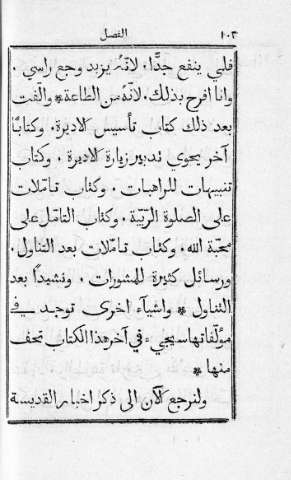 ١٠٣ الفصل
قلبي ينفع جدًّا. لانّهُ يزيد وجع راسي.
وانا افرح بذلك. لانّهُ من الطاعة * والّفت
بعد ذلك كتاب تأسيس الاديرة. وكتابًا
آخر يحوي تدبير زيارة الاديرة. وكتاب
تنبيهات للراهبات. وكتاب تأملات
على الصلوة الربّية. وكتاب التأمل على
محبّة الله. وكتاب تأملات بعد التناول.
ورسائل كثيرة للمشورات. ونشيدًا بعد
التناول * واشيآء اخرى توجد في
مؤلّفاتها سيجيء في آخر هذا الكتاب تحف
منها *
ولنرجع الآن الى ذكر اخبار القديسة